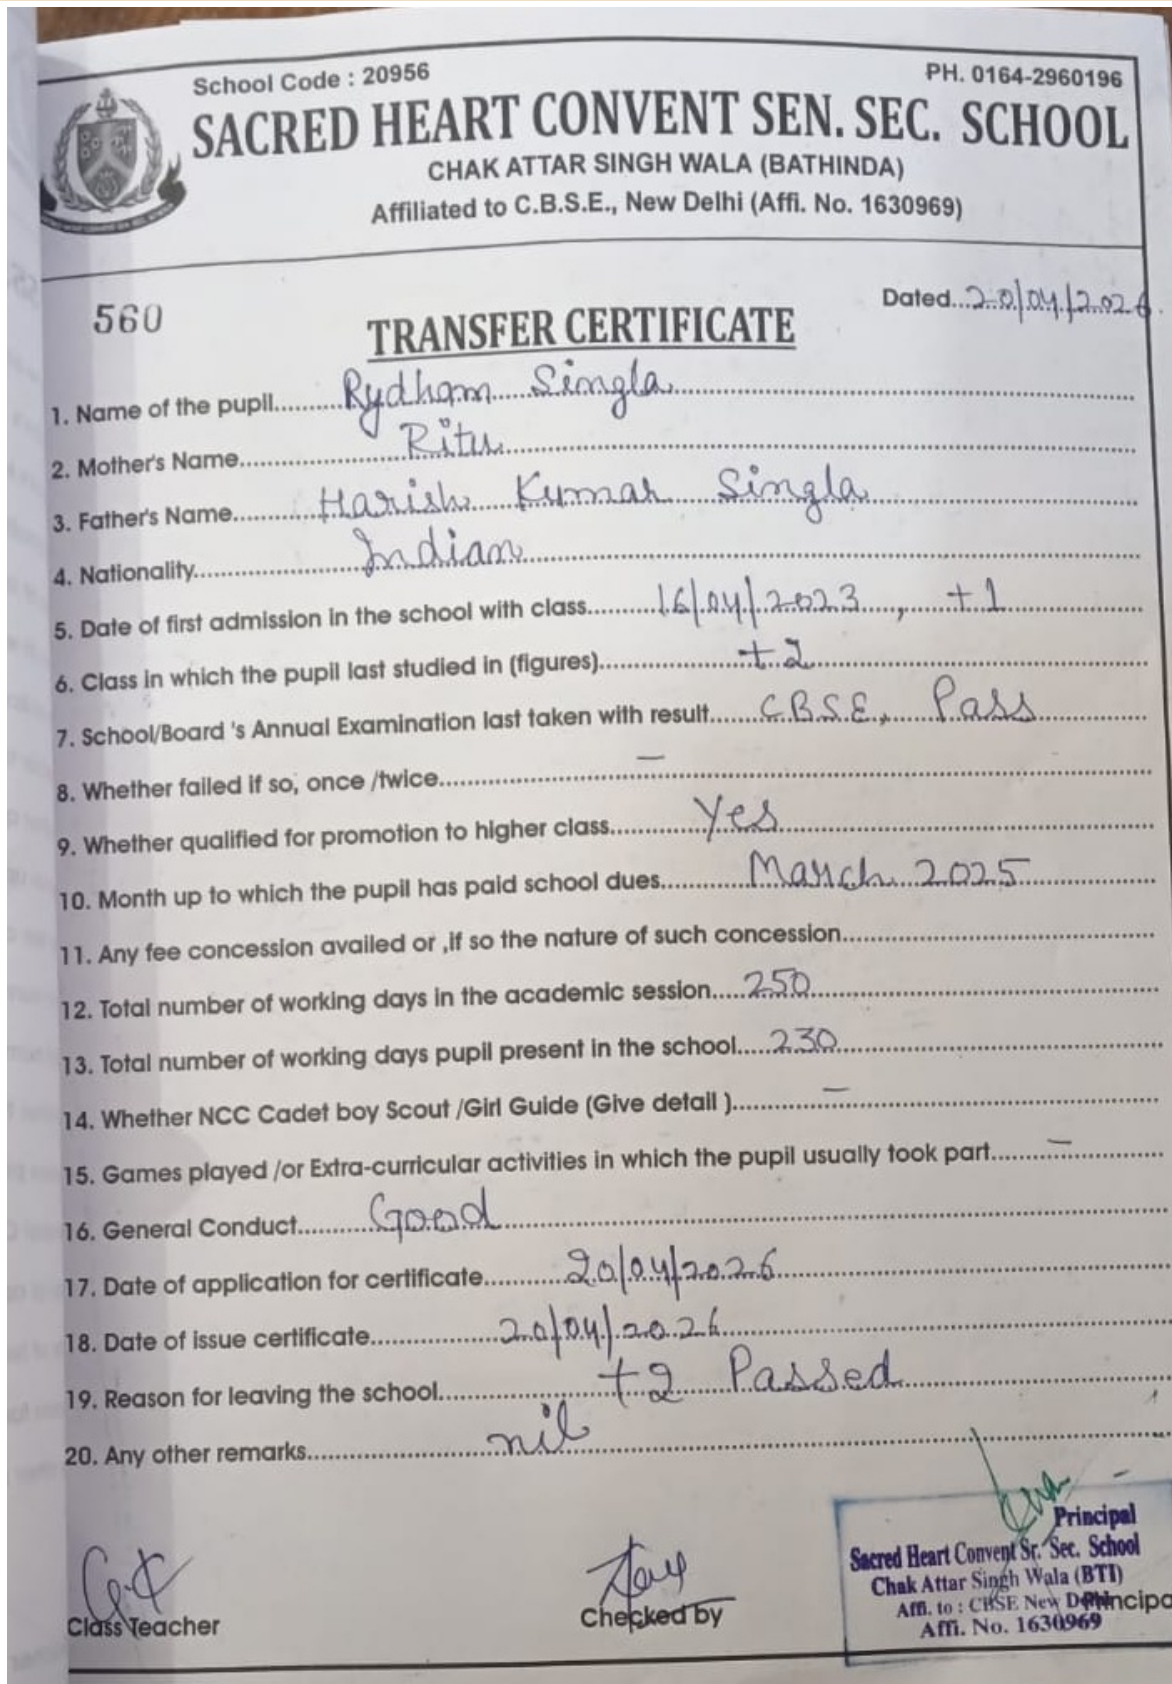 School Code : 20956
PH. 0164-2960196
SACRED HEART CONVENT SEN. SEC. SCHOOL
CHAK ATTAR SINGH WALA (BATHINDA)
Affiliated to C.B.S.E., New Delhi (Affi. No. 1630969)
560
Dated...20/04/2026
TRANSFER CERTIFICATE
1. Name of the pupil.........Rydham Singla
2. Mother's Name.........Ritu
3. Father's Name.........Harish Kumar Singla
4. Nationality.........Indian
5. Date of first admission in the school with class.........16/04/2023, +1
6. Class in which the pupil last studied in (figures).........+2
7. School/Board 's Annual Examination last taken with result.......CBSE, Pass
8. Whether failed if so, once /twice.........—
9. Whether qualified for promotion to higher class.........Yes
10. Month up to which the pupil has paid school dues.........March 2025
11. Any fee concession availed or ,if so the nature of such concession.........
12. Total number of working days in the academic session.....250
13. Total number of working days pupil present in the school.....230
14. Whether NCC Cadet boy Scout /Girl Guide (Give detail ).........—
15. Games played /or Extra-curricular activities in which the pupil usually took part.........—
16. General Conduct.........Good
17. Date of application for certificate.........20/04/2026
18. Date of issue certificate.........20/04/2026
19. Reason for leaving the school.........+2 Passed
20. Any other remarks.........nil
Principal
Sacred Heart Convent Sr. Sec. School
Chak Attar Singh Wala (BTI)
Affi. to : CBSE New Delhi
Affi. No. 1630969
Class Teacher
Checked by
Principal